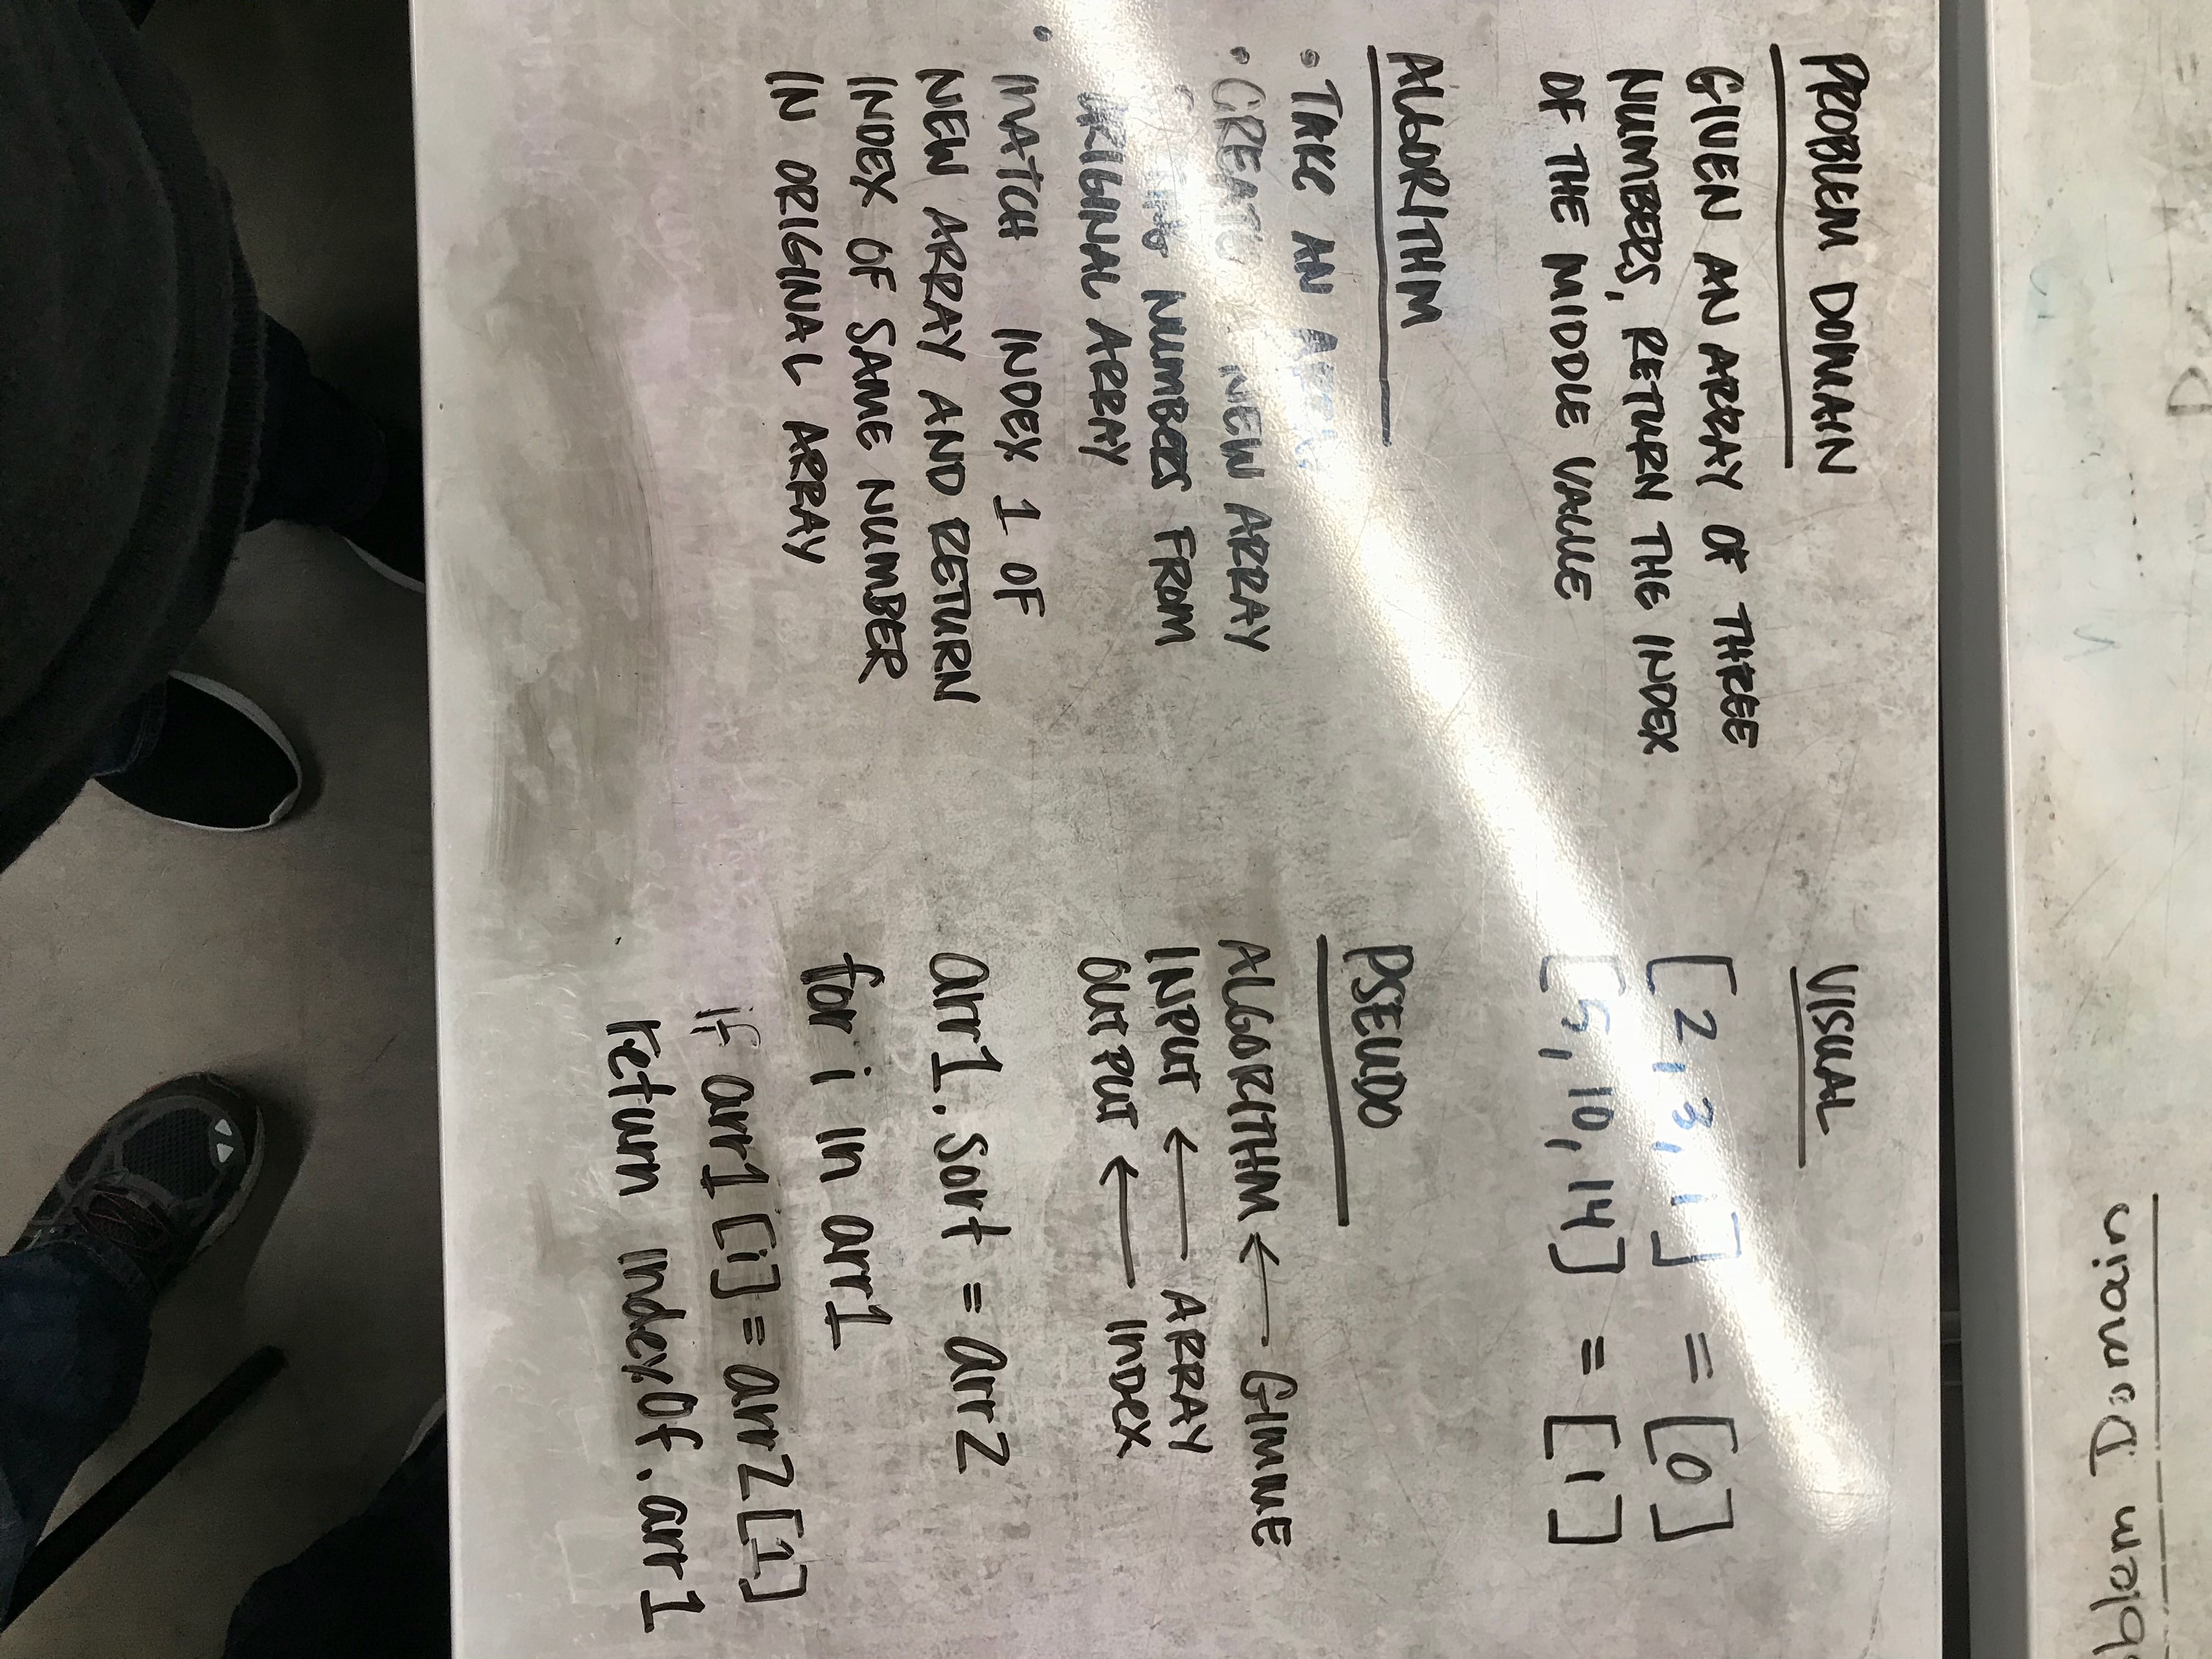 blem Domain
PROBLEM DOMAIN
GIVEN AN ARRAY OF THREE
NUMBERS, RETURN THE INDEX
OF THE MIDDLE VALUE
ALGORITHM
• TAKE AN ARRAY
• CREATE A NEW ARRAY
NUMBERS FROM
ORIGINAL ARRAY
• MATCH INDEX 1 OF
NEW ARRAY AND RETURN
INDEX OF SAME NUMBER
IN ORIGINAL ARRAY
VISUAL
[2, 3, 1] = [0]
[5, 10, 14] = [1]
PSEUDO
ALGORITHM ← GIMME
INPUT ← ARRAY
OUTPUT ← INDEX
arr1.sort = arr2
for i in arr1
if arr1[i] = arr2[1]
return indexOf.arr1